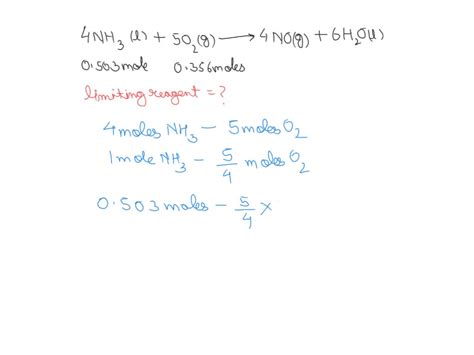 4NH₃(l) + 5O₂(g) ⟶ 4NO(g) + 6H₂O(l)
0.503mole 0.356moles
limiting reagent = ?
4 moles NH₃ – 5 moles O₂
1 mole NH₃ – 5/4 moles O₂
0.503 moles – 5/4 ×